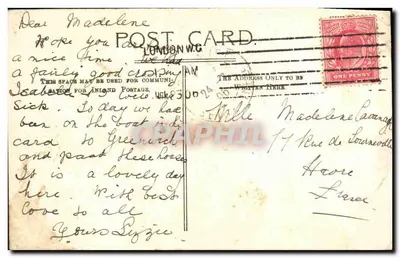 Dear Madeleine
POST CARD.
Hope you are
LONDON W.C
a nice time we had
a fairly good crossing
THIS SPACE MAY BE USED FOR COMMUNI-
THE ADDRESS ONLY TO BE
WRITTEN HERE
FOR INLAND POSTAGE
ONE PENNY
sick. To day we have
been on the boat in
card to Greenwich
and past these houses
It is a lovely day
here. With best
love to all
Yours Lizzie
Mlle Madeleine
17 rue de
Havre
France
CPAPHIL